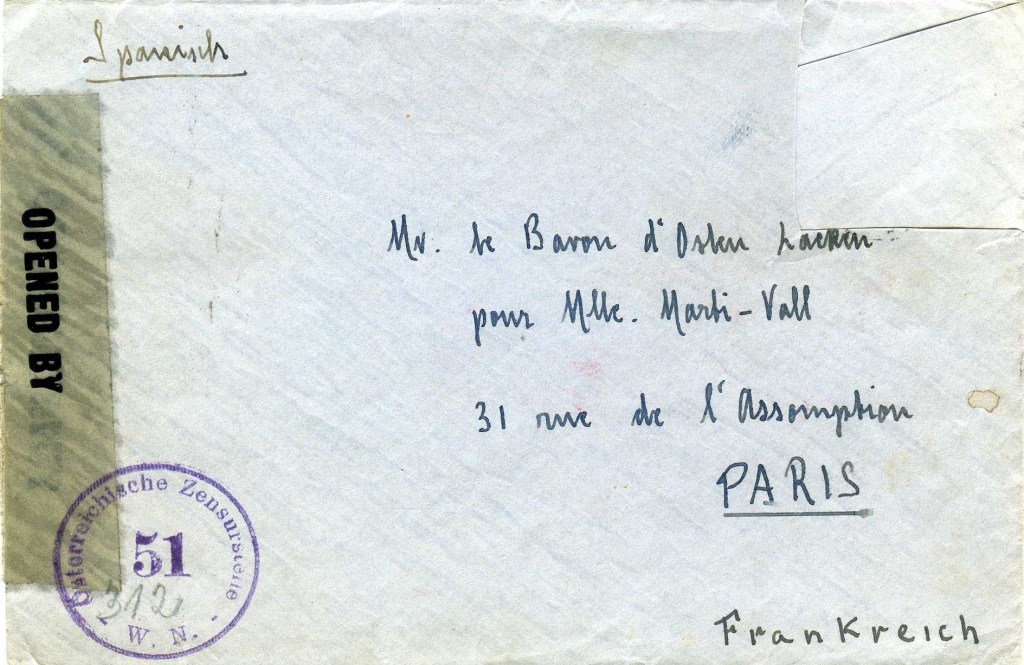 Spanisch
OPENED BY
Mr. le Baron d'Osten Sacken
pour Mlle. Marti-Vall
31 rue de l'Assomption
PARIS
Österreichische Zensurstelle
51
312
W. N.
Frankreich